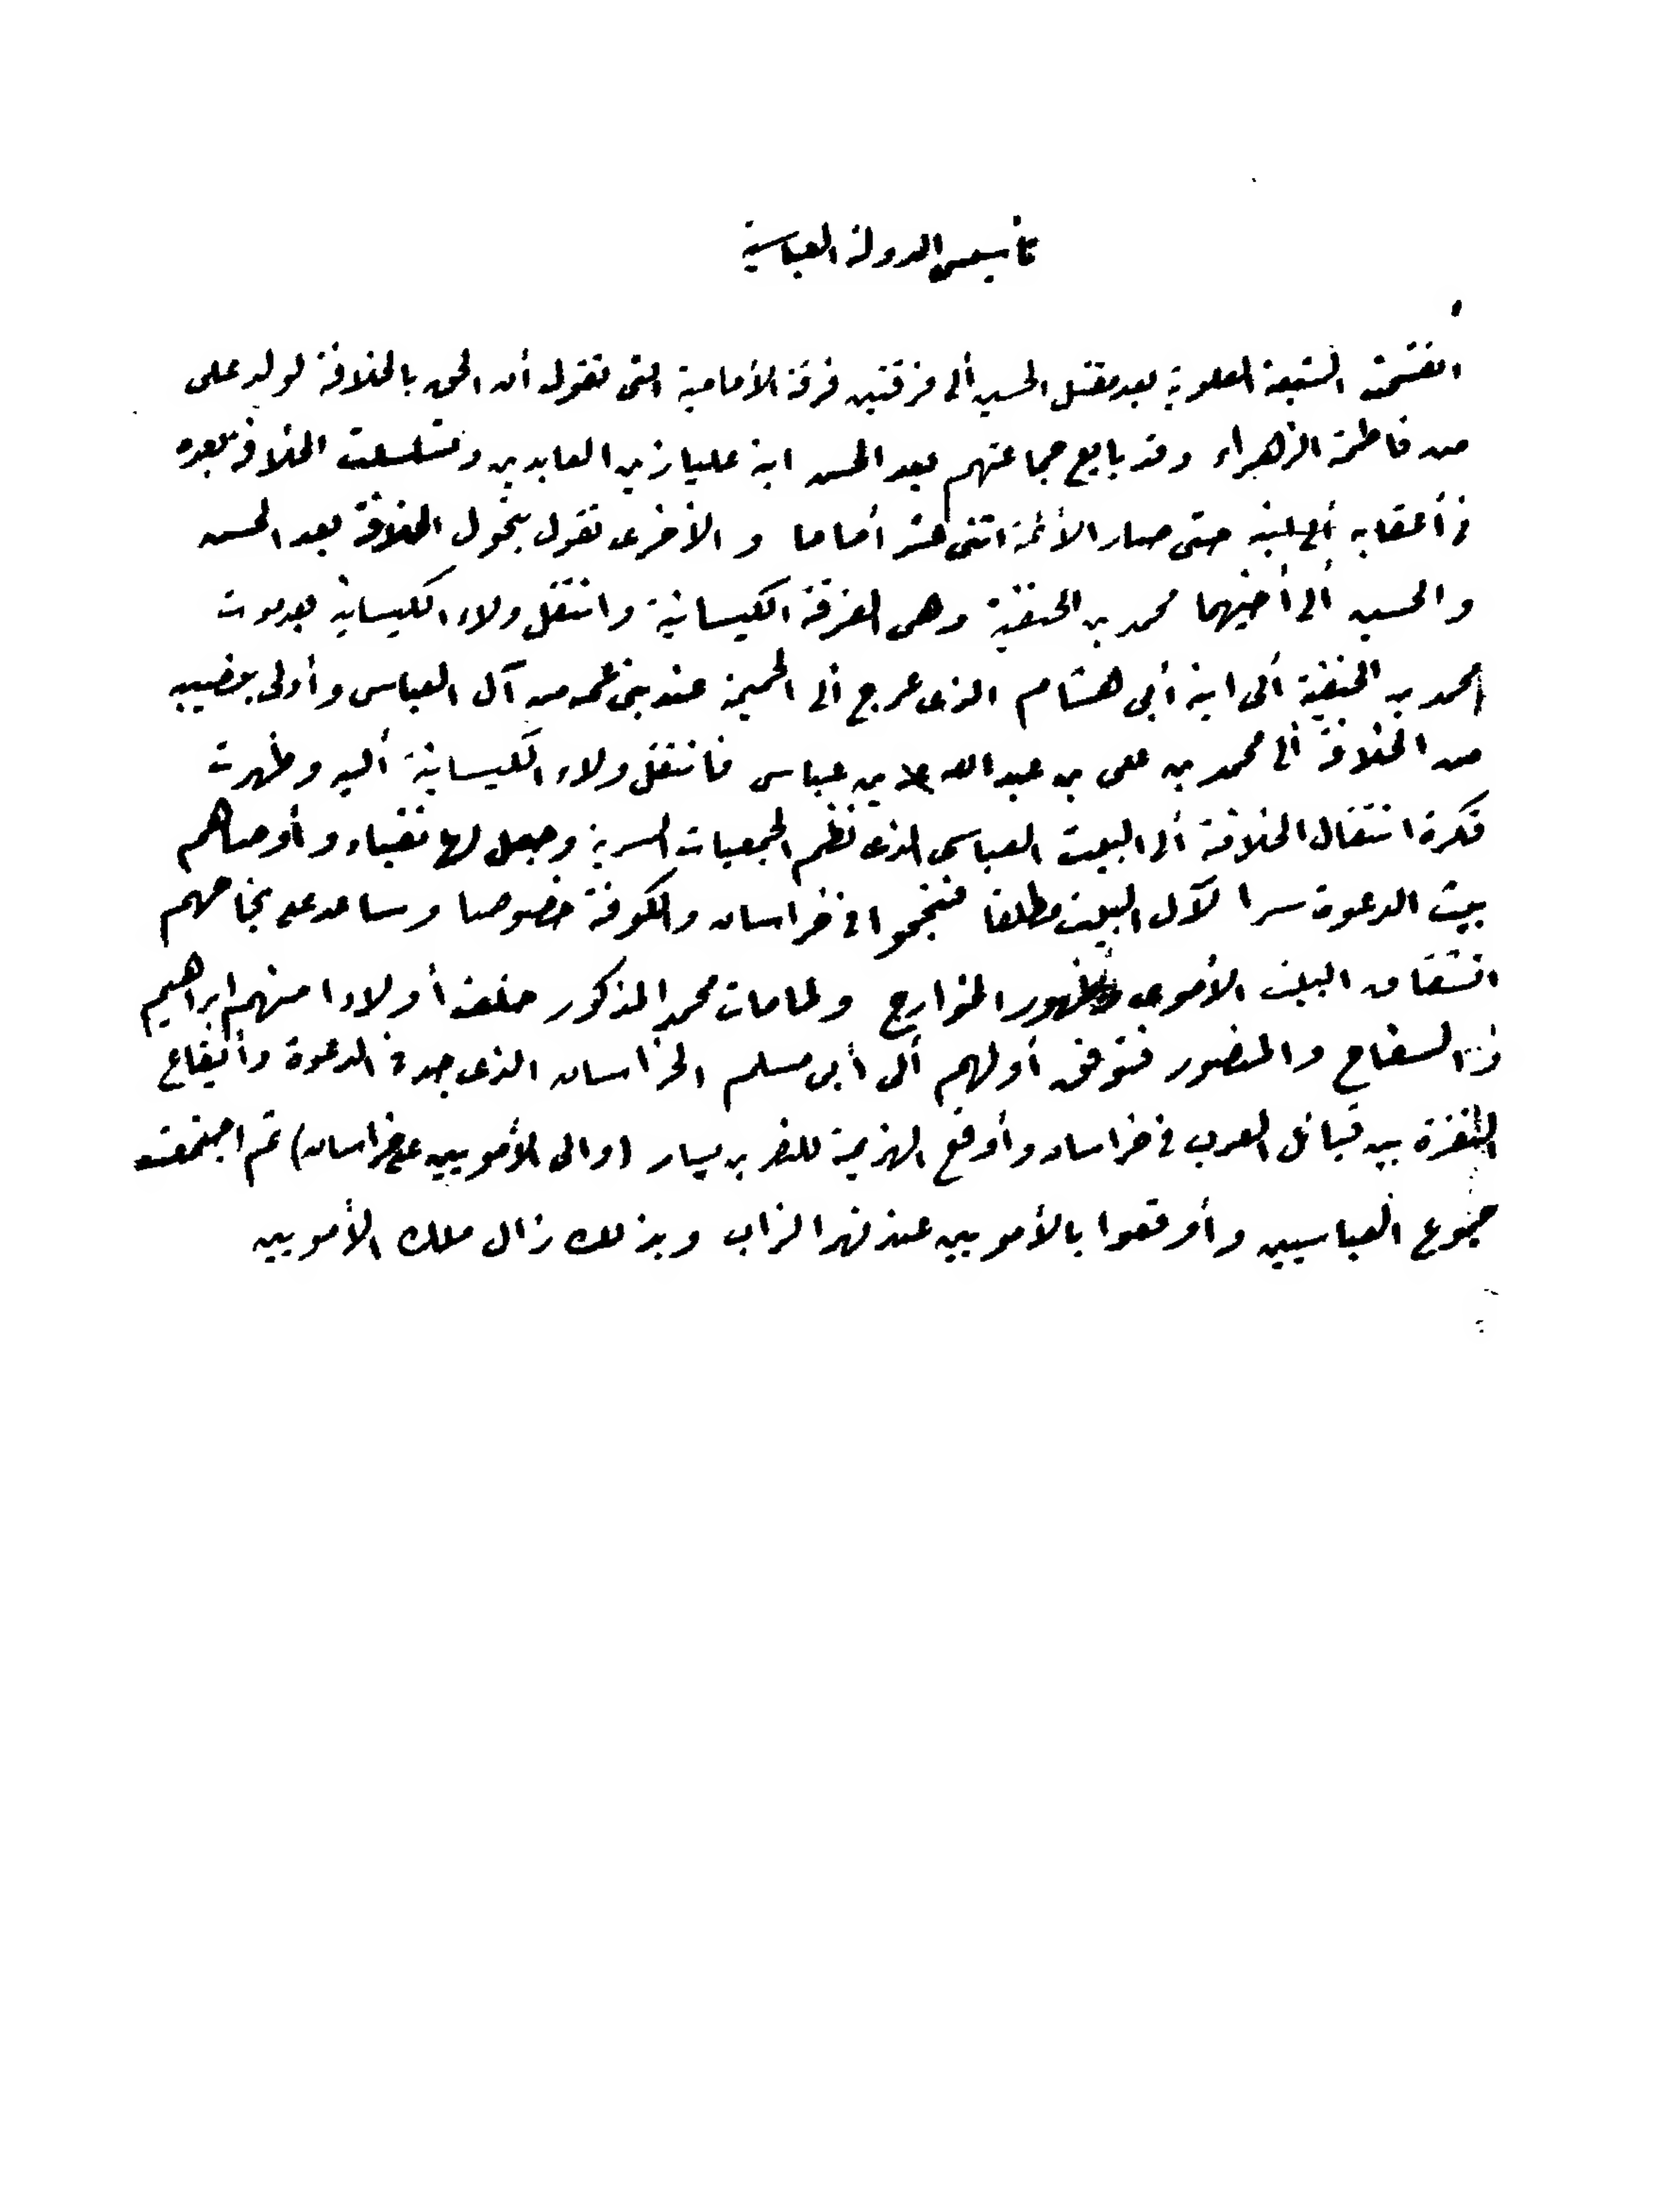 تأسيس الدولة العباسية
انقسمت الشيعة العلوية بعد مقتل الحسين ألى فرقتين فرقة الأمامية التى تقول أن الحق بالخلافة لولد على
من فاطمة الزهراء وقد بايع جماعتهم بعد الحسن ابنه عليا زين العابدين وتسلسلت الخلافة بعده
فى أعقابه حتى صار الأئمة اثنى عشر أماما و الأخرى تقول بتحول الخلافة بعد الحسن
والحسين ألى أخيهما محمد بن الحنفية وهى الفرقة الكيسانية وانتقل ولاء الكيسانية بعد موت
محمد بن الحنفية ألى ابنه أبى هشام الذى عرج ألى الحميمة عند بنى عمه من آل العباس وأدلى بنصيبه
من الخلافة ألى محمد بن على بن عبد الله بن عباس فانتقل ولاء الكيسانية أليه وظهرت
فكرة انتقال الخلافة ألى البيت العباسى الذى نظم الجمعيات السرية وجعل لها نقباء وأوصاهم
ببث الدعوة سرا لآل البيت مطلقا فنجحوا فى خراسان والكوفة خصوصا وساعد على نجاحهم
انشقاق البيت الأموى وظهور الخوارج ولما مات محمد المذكور خلف أولادا منهم ابراهيم
السفاح والمنصور فتوفق أولهم ألى أبى مسلم الخراسان الذى جد فى الدعوة وأيقاع
النفرة بين قبائل العرب فى خراسان وأوقع الهزيمة للنصر بن سيار (والى الأمويين على خراسان) ثم اجتمعت
جموع العباسيين وأوقعوا بالأمويين عند نهر الزاب وبذلك زال ملك الأمويين